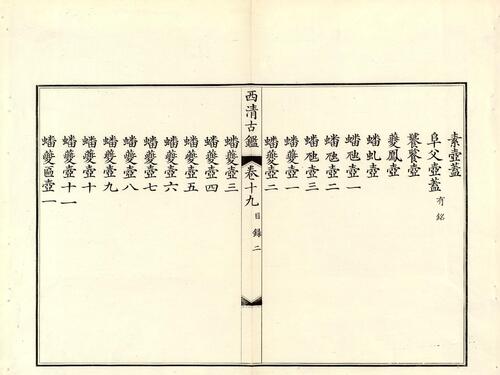 素壺蓋
阜父壺蓋 有銘
饕餮壺
夔鳳壺
蟠虬壺
蟠虺壺一
蟠虺壺二
蟠虺壺三
蟠夔壺一
蟠夔壺二
西清古鑑 卷十九 目錄 二
蟠夔壺三
蟠夔壺四
蟠夔壺五
蟠夔壺六
蟠夔壺七
蟠夔壺八
蟠夔壺九
蟠夔壺十
蟠夔壺十一
蟠夔匾壺一